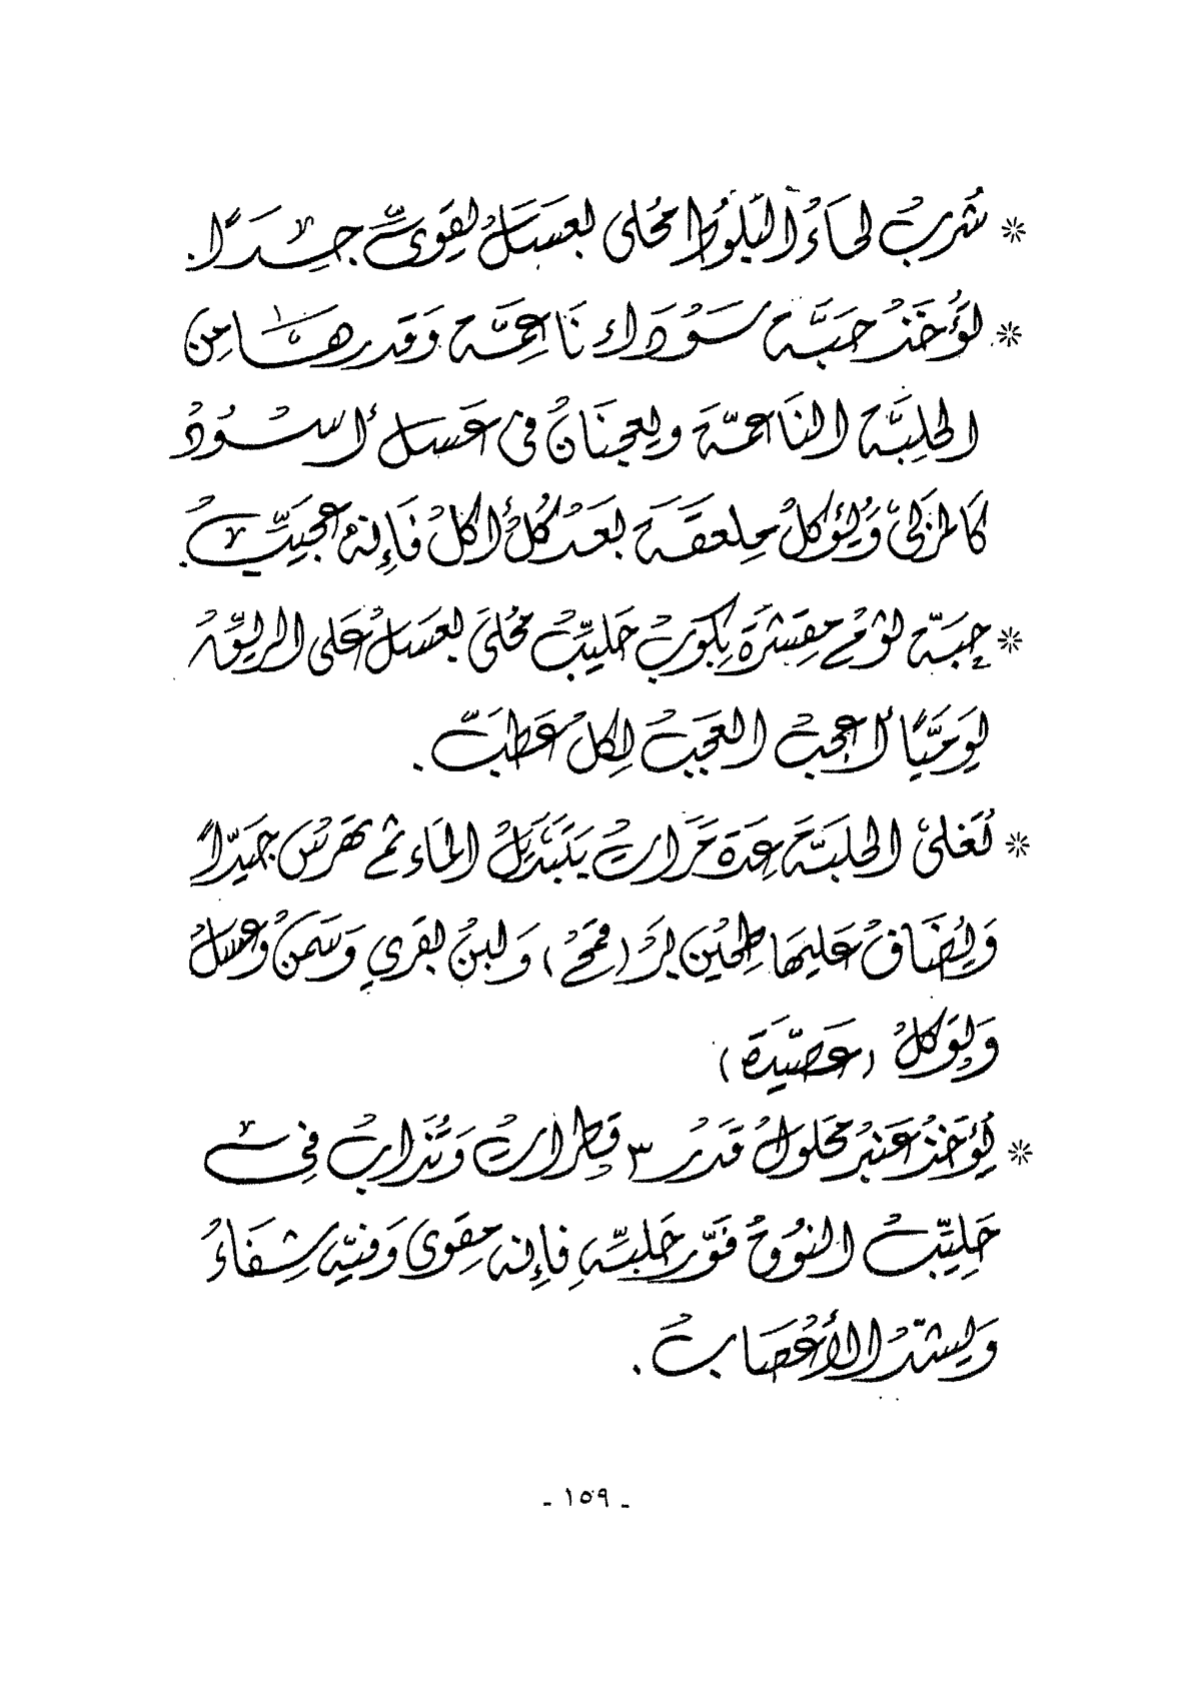 * شُربُ لحاءُ البلوط محلى بعسلُ يقوىّ جِدًا.
* يؤُخذُ حبَّة سوُداء ناعمَّة وَقدرهَا مِن
الحلِبَّة الناعمَّة ويعجنانُ فى عَسل أسْوُدُ
كالمربىْ وَيُؤكلُ ملعقَة بعَدُ كُلُ أكلُ فَإِنهُ عجيَّبُ.
* حِبَّة ثومُ مقشرَة بِكوبُ حَليّبُ محُلىَ بعسَلُ عَلى الريقُ
يَومَيًا أعجبُ العَجبُ لِكلُ عَطَبّ.
* تُغلىْ الحلبَّة عِدَة مَرَاتُ يتَبَدَيلُ الماَء ثم تهَرسُ جَيدًا
وَيُضَافُ عَليهَا طِحْين بُرَ (قمحُ) وَلبنُ بقرَي وَسَمنُ وعسلُ
وَيؤكلُ (عَصّيدَة)
* يُؤخَذُ عَنبرُ محَلولُ قَدرُ ٣ قطِراتُ وَتُذَابُ فِى
حَلِيّبُ النوُقُ فَوّر حَلبّهِ فإِنه مقِوَى وَفيّه شِفَاءُ
وَيشدّ الأعْصَابُ.
- ١٥٩ -